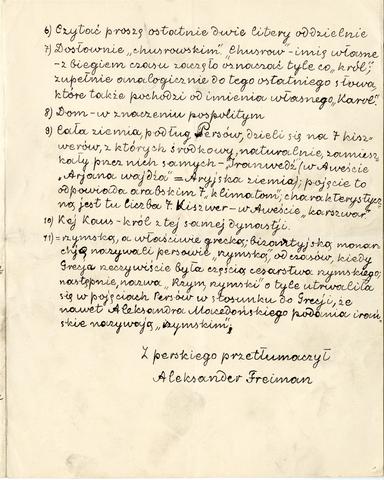 6) Czytać proszę ostatnie dwie litery oddzielnie
7) Dosłownie „chusrowskim". Chusrow – imię własne
– z biegiem czasu zaczęło oznaczać tyle co „król",
zupełnie analogicznie do tego ostatniego słowa,
które także pochodzi od imienia własnego „Karol".
8) Dom – w znaczeniu pospolitym
9) Cała ziemia, podług Persów, dzieli się na 7 kisz-
werów, z których środkowy, naturalnie, zamiesz-
kały przez nich samych – „Iranwedż" (w Aweście
„Arjana wajdża" = Aryjska ziemia); pojęcie to
odpowiada arabskim 7 „klimatom"; charakterystycz-
ną jest tu liczba 7. Kiszwer – w Aweście „karszwar"
10) Kej Kaus – król z tej samej dynastji.
11) = rzymską, a właściwie grecką; bizantyjską monar-
chją nazywali persowie „rzymską", od czasów, kiedy
Grecja rzeczywiście była częścią cesarstwa rzymskiego;
następnie, nazwa „Rzym, rzymski" o tyle utrwaliła
się w pojęciach Persów w stosunku do Grecji, że
nawet Aleksandra Macedońskiego podania irań-
skie nazywają „rzymskim",
Z perskiego przetłumaczył
Aleksander Freiman